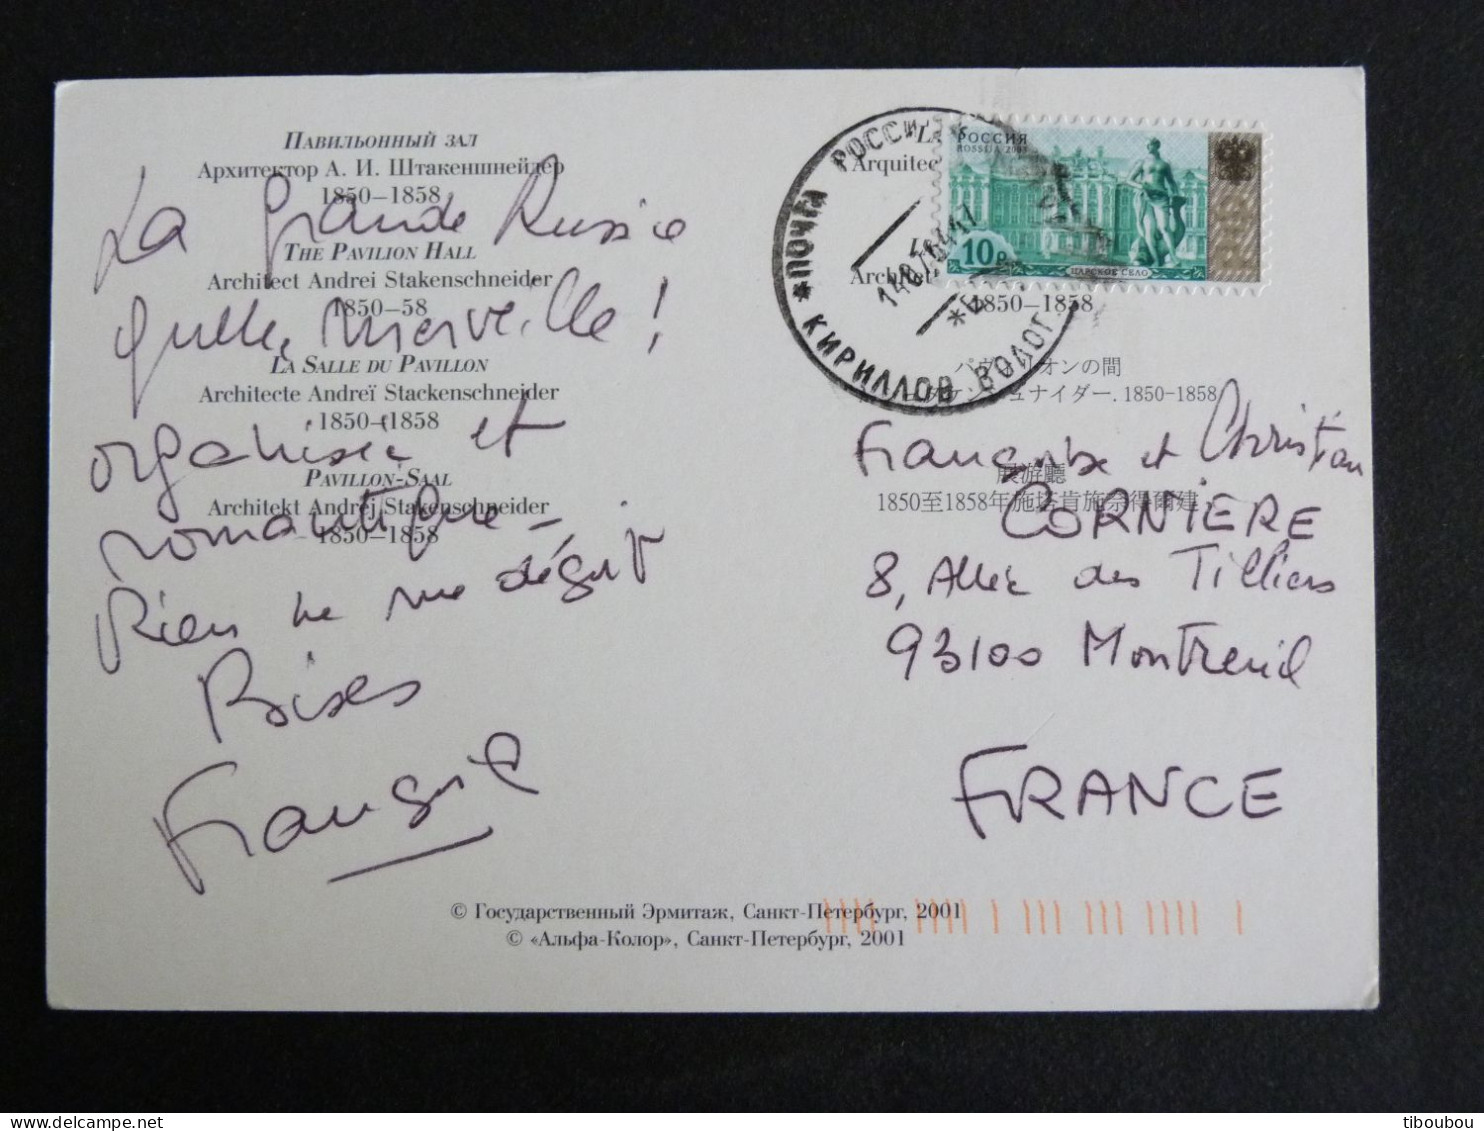 ПАВИЛЬОННЫЙ ЗАЛ
Архитектор А. И. Штакеншнейдер
1850–1858
THE PAVILION HALL
Architect Andrei Stakenschneider
1850–58
LA SALLE DU PAVILLON
Architecte Andreï Stackenschneider
1850–1858
PAVILLON-SAAL
Architekt Andrej Stakenschneider
1850–1858
La Grande Russie
quelle merveille !
organisée et
romantique –
Rien ne me dégoit
Bises
Françoise
Arquitec
Archit
1850–1858
オンの間
ュナイダー. 1850-1858
展游廳
1850至1858年施塔肯施奈得爾建
РОССИЯ
ROSSIJA
10р
ЦАРСКОЕ СЕЛО
ПОЧТА РОССИИ
КИРИЛЛОВ ВОЛОГ.
Françoise et Christian
CORNIERE
8, Allée des Tilliers
93100 Montreuil
FRANCE
© Государственный Эрмитаж, Санкт-Петербург, 2001
© «Альфа-Колор», Санкт-Петербург, 2001
tiboubou